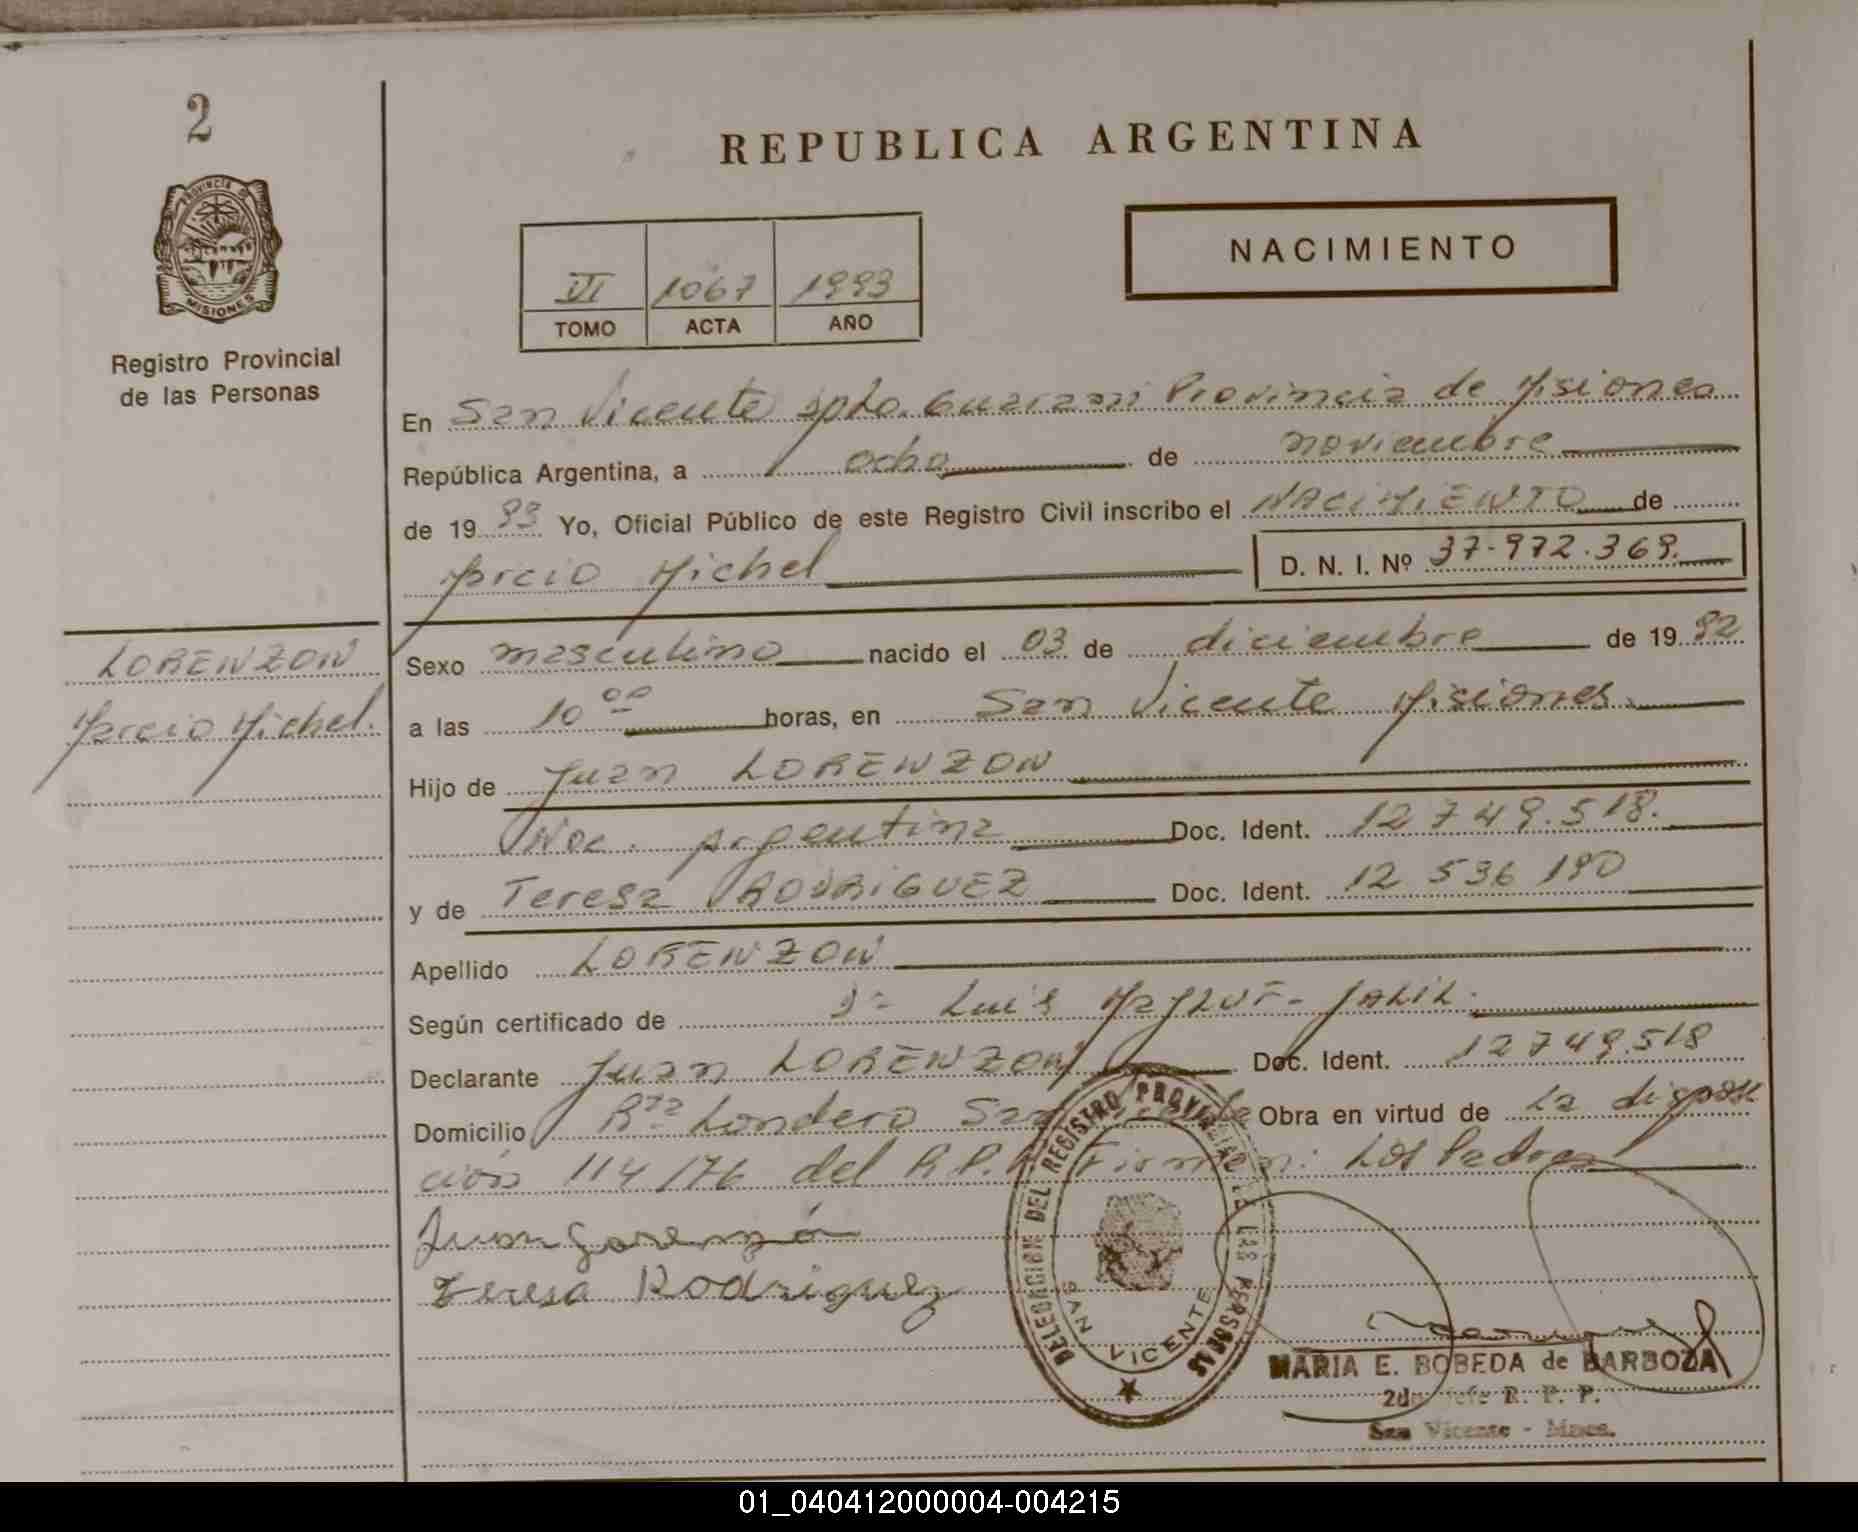 2
REPUBLICA ARGENTINA
PROVINCIA DE
MISIONES
NACIMIENTO
VI 1067 1993
TOMO ACTA AÑO
Registro Provincial
de las Personas
En San Vicente Dpto. Guarani Provincia de Misiones
República Argentina, a ocho de noviembre
de 19 93 Yo, Oficial Público de este Registro Civil inscribo el NACIMIENTO de
Marcio Michel D. N. I. Nº 37.972.369.
LORENZON
Marcio Michel.
Sexo masculino nacido el 03 de diciembre de 19 92
a las 10 00 horas, en San Vicente Misiones.
Hijo de Juan LORENZON
Nac. Argentina Doc. Ident. 12 749.518.
y de Teresa RODRIGUEZ Doc. Ident. 12 536 190
Apellido LORENZON
Según certificado de Luis
Declarante Juan LORENZON Doc. Ident. 12 749.518
Domicilio Londero San Obra en virtud de La disposi
ción 114/76 del R.P. Firman: Los Padres
Juan Lorenzón
Teresa Rodriguez
DELEGACION DEL REGISTRO PROVINCIAL DE LAS PERSONAS
SAN VICENTE
MARIA E. BOBEDA de BARBOZA
2do Jefe R. P. P.
San Vicente - Mnes.
01_040412000004-004215